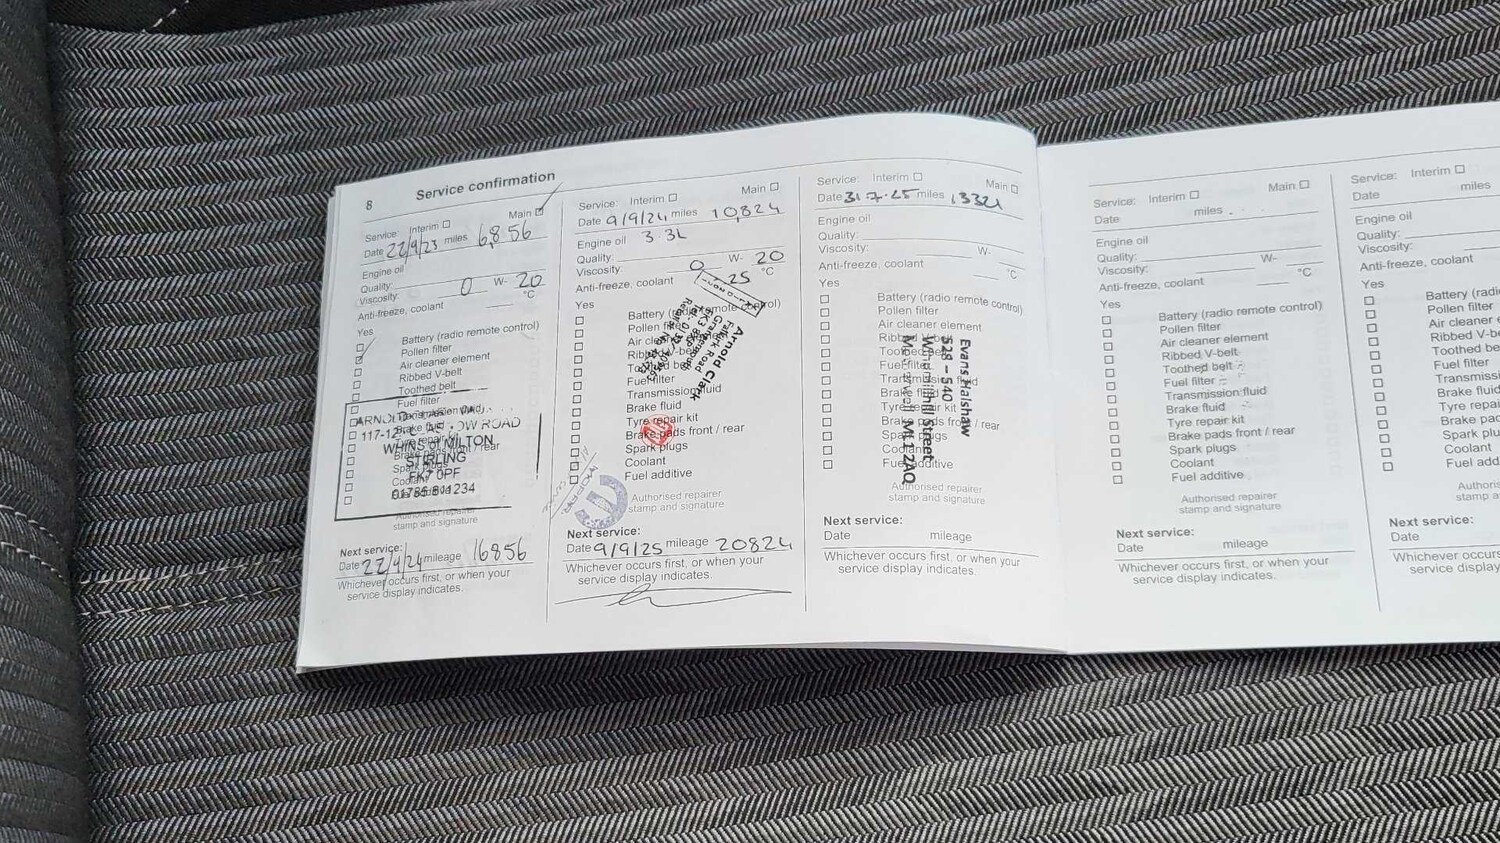 8 Service confirmation
Service: Interim Main
Date 22/9/23 miles 6,856
Engine oil
Quality:
Viscosity: 0 W- 20
Anti-freeze, coolant °C
Yes
Battery (radio remote control)
Pollen filter
Air cleaner element
Ribbed V-belt
Toothed belt
Fuel filter
Brake fluid
117-12
ROAD
WHINS of MILTON
STIRLING
FK7 0PF
01785 811234
Authorised repairer
stamp and signature
Next service:
Date 22/9/24 mileage 16856
Whichever occurs first, or when your
service display indicates.
Service: Interim Main
Date 9/9/24 miles 10,824
Engine oil 3.3L
Quality:
Viscosity: 0 W- 20
Anti-freeze, coolant -25 °C
Yes
Battery
Pollen
Fuel filter
Transmission fluid
Brake fluid
Tyre repair kit
Brake pads front / rear
Spark plugs
Coolant
Fuel additive
Arnold Clark
Falkirk Road
Authorised repairer
stamp and signature
Next service:
Date 9/9/25 mileage 20824
Whichever occurs first, or when your
service display indicates.
Service: Interim Main
Date 31.7.25 miles 13321
Engine oil
Quality:
Viscosity: W-
Anti-freeze, coolant °C
Yes
Battery (radio remote control)
Pollen filter
Air cleaner element
Ribbed V-belt
Toothed belt
Fuel filter
Transmission fluid
Brake fluid
Tyre repair kit
Brake pads front / rear
Spark plugs
Coolant
Fuel additive
Evans Halshaw
528 - 540
Windmillhill Street
Motherwell ML1 2AQ
Authorised repairer
stamp and signature
Next service:
Date mileage
Whichever occurs first, or when your
service display indicates.
Service: Interim Main
Date miles
Engine oil
Quality:
Viscosity: W-
Anti-freeze, coolant °C
Yes
Battery (radio remote control)
Pollen filter
Air cleaner element
Ribbed V-belt
Toothed belt
Fuel filter
Transmission fluid
Brake fluid
Tyre repair kit
Brake pads front / rear
Spark plugs
Coolant
Fuel additive
Authorised repairer
stamp and signature
Next service:
Date mileage
Whichever occurs first, or when your
service display indicates.
Service: Interim
Date miles
Engine oil
Quality:
Viscosity:
Anti-freeze, coolant
Yes
Battery (radio
Pollen filter
Air cleaner
Ribbed V-b
Toothed b
Fuel filter
Transmiss
Brake fluid
Tyre repa
Brake pad
Spark plu
Coolant
Fuel add
Authoris
stamp a
Next service:
Date
Whichever occurs
service display